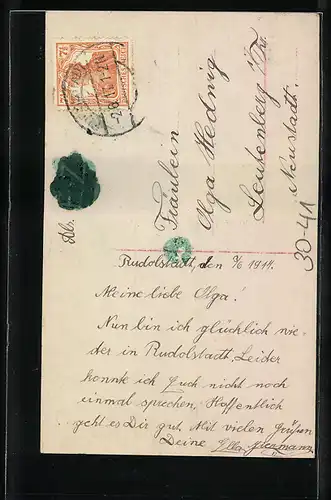 Fräulein
Olga Hednig
Leutenberg i/Th.
Neustadt.
30-41
Abs.
Rudolstadt, den 9/6 1917.
Meine liebe Olga!
Nun bin ich glücklich wie-
der in Rudolstadt. Leider
konnte ich Euch nicht noch
einmal sprechen. Hoffentlich
geht es Dir gut. Mit vielen Grüßen
Deine Ella